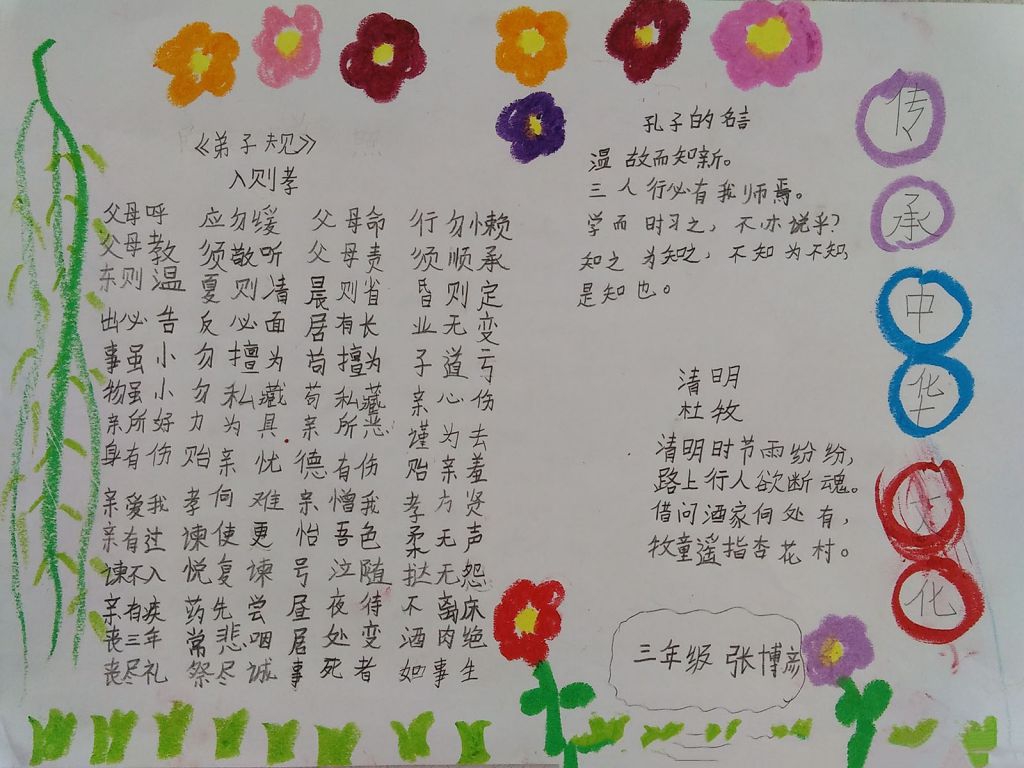 《弟子规》
入则孝
父母呼 应勿缓 父母命 行勿懒
父母教 须敬听 父母责 须顺承
东则温 夏则凊 晨则省 昏则定
出必告 反必面 居有长 业无变
事虽小 勿擅为 苟擅为 子道亏
物虽小 勿私藏 苟私藏 亲心伤
亲所好 力为具 亲所恶 谨为去
身有伤 贻亲忧 德有伤 贻亲羞
亲爱我 孝何难 亲憎我 孝方贤
亲有过 谏使更 怡吾色 柔无声
谏不入 悦复谏 号泣随 挞无怨
亲有疾 药先尝 昼夜侍 不离床
丧三年 常悲咽 居处变 酒肉绝
丧尽礼 祭尽诚 事死者 如事生
孔子的名言
温故而知新。
三人行必有我师焉。
学而时习之，不亦说乎？
知之为知之，不知为不知，
是知也。
清明
杜牧
清明时节雨纷纷，
路上行人欲断魂。
借问酒家何处有，
牧童遥指杏花村。
三年级 张博彦
传
承
中
华
文
化